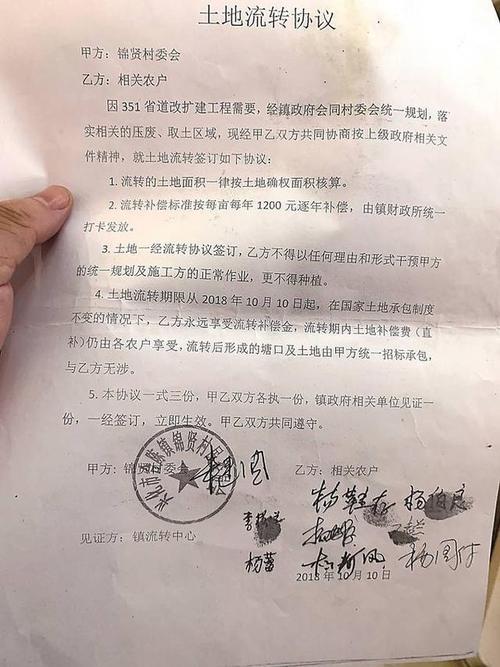 土地流转协议
甲方：锦贤村委会
乙方：相关农户
因 351 省道改扩建工程需要，经镇政府会同村委会统一规划，落
实相关的压废、取土区域，现经甲乙双方共同协商按上级政府相关文
件精神，就土地流转签订如下协议：
1. 流转的土地面积一律按土地确权面积核算。
2. 流转补偿标准按每亩每年 1200 元逐年补偿，由镇财政所统一
打卡发放。
3. 土地一经流转协议签订，乙方不得以任何理由和形式干预甲方
的统一规划及施工方的正常作业，更不得种植。
4. 土地流转期限从 2018 年 10 月 10 日起，在国家土地承包制度
不变的情况下，乙方永远享受流转补偿金，流转期内土地补偿费（直
补）仍由各农户享受，流转后形成的塘口及土地由甲方统一招标承包，
与乙方无涉。
5. 本协议一式三份，甲乙双方各执一份，镇政府相关单位见证一
份，一经签订，立即生效。甲乙双方共同遵守。
甲方：锦贤村委会
乙方：相关农户
见证方：镇流转中心
2018 年 10 月 10 日